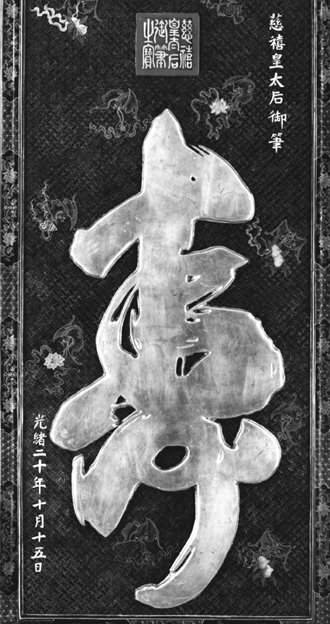 慈禧皇太后御筆
慈禧皇太后御筆之寶
壽
光緒二十年十月十五日